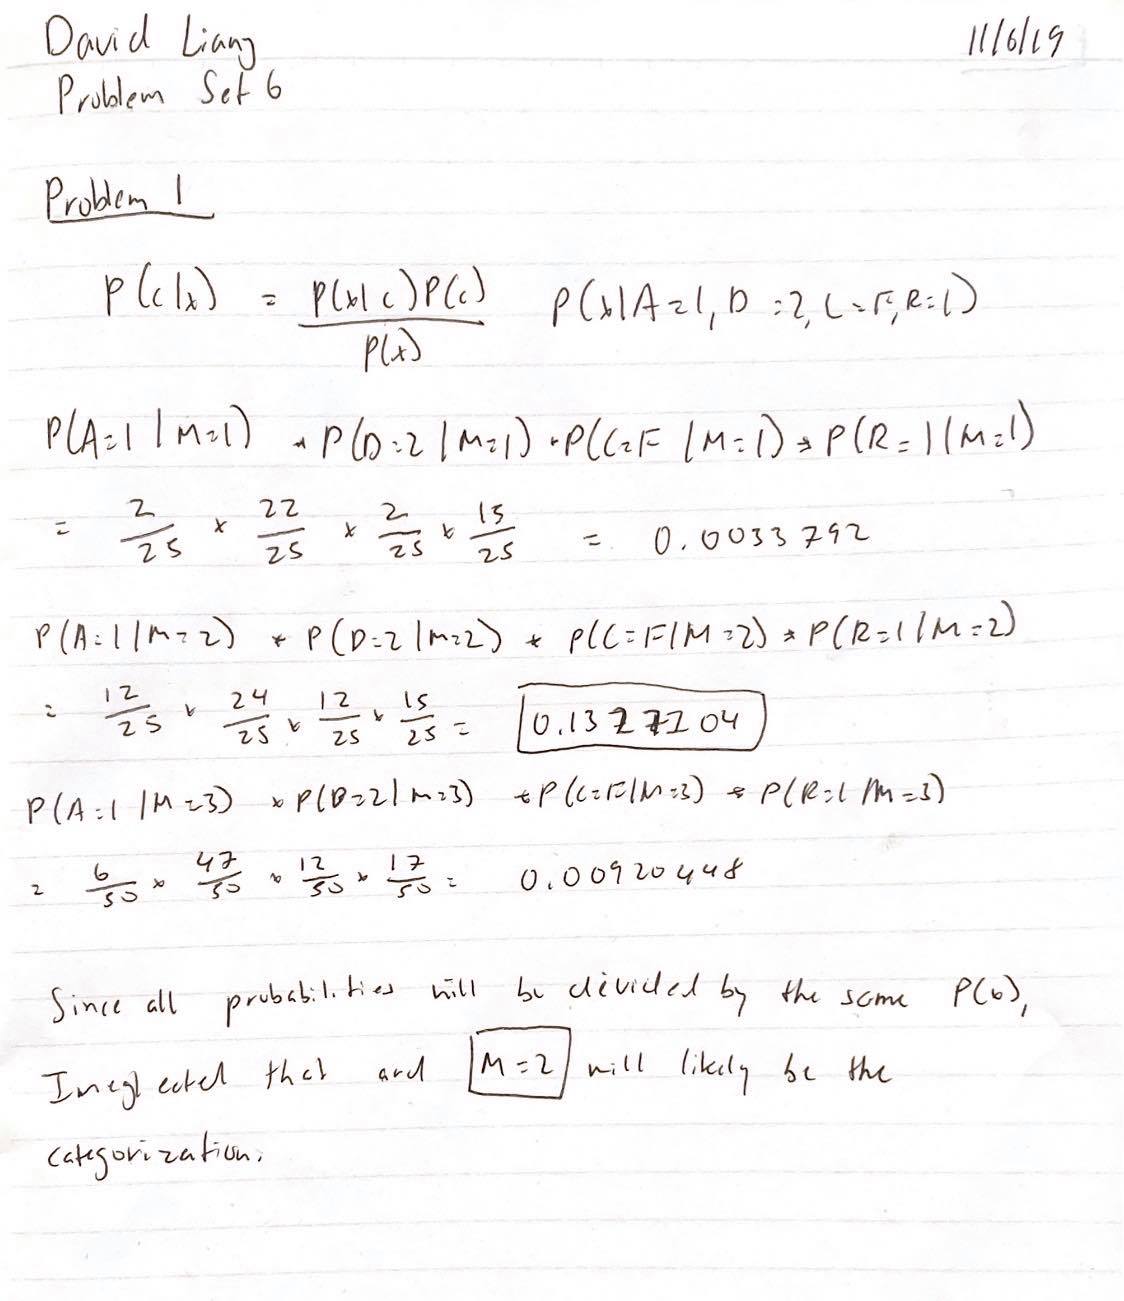 David Liang 11/6/19
Problem Set 6
Problem 1
P(c|x) = P(x|c)P(c) / P(x) P(x|A=1, D=2, C=F, R=1)
P(A=1|M=1) * P(D=2|M=1) * P(C=F|M=1) * P(R=1|M=1)
= 2/25 × 22/25 × 2/25 × 15/25 = 0.0033792
P(A=1|M=2) * P(D=2|M=2) * P(C=F|M=2) * P(R=1|M=2)
= 12/25 × 24/25 × 12/25 × 15/25 = 0.1327104
P(A=1|M=3) * P(D=2|M=3) * P(C=F|M=3) * P(R=1|M=3)
= 6/50 × 47/50 × 12/50 × 17/50 = 0.00920448
Since all probabilities will be divided by the same P(x),
I neglected that and M=2 will likely be the
categorization.